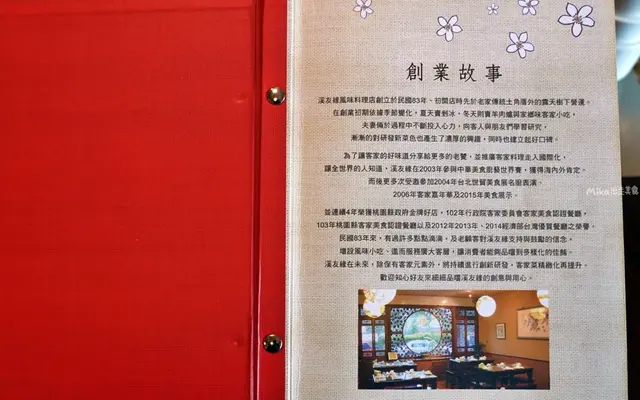 創業故事
溪友緣風味料理店創立於民國83年、初開店時先於老家傳統土角厝外的露天樹下營運。
在創業初期依據季節變化，夏天賣剉冰、冬天則賣羊肉爐與家鄉味客家小吃，
夫妻倆於過程中不斷投入心力，向客人與朋友們學習研究，
漸漸的對研發新菜色也產生了濃厚的興趣，同時也建立起好口碑。
為了讓客家的好味道分享給更多的老饕，並推廣客家料理走入國際化，
讓全世界的人知道，溪友緣在2003年參與中華美食廚藝世界賽，獲得海內外肯定。
而後更多次受邀參加2004年台北世貿美食展名廚表演、
2006年客家嘉年華及2015年美食展示。
並連續4年榮獲桃園縣政府金牌好店，102年行政院客家委員會客家美食認證餐廳，
103年桃園縣客家美食認證餐廳以及2012年2013年、2014經濟部台灣優質餐廳之榮譽。
民國83年來，有過許多點點滴滴，及老顧客對溪友緣支持與鼓勵的信念，
增設風味小吃、進而服務廣大客層，讓消費者能夠品嚐到多樣化的佳餚。
溪友緣在未來，除保有客家元素外，將持續進行創新研發，客家菜精緻化再提升。
歡迎知心好友來細細品嚐溪友緣的創意與用心。